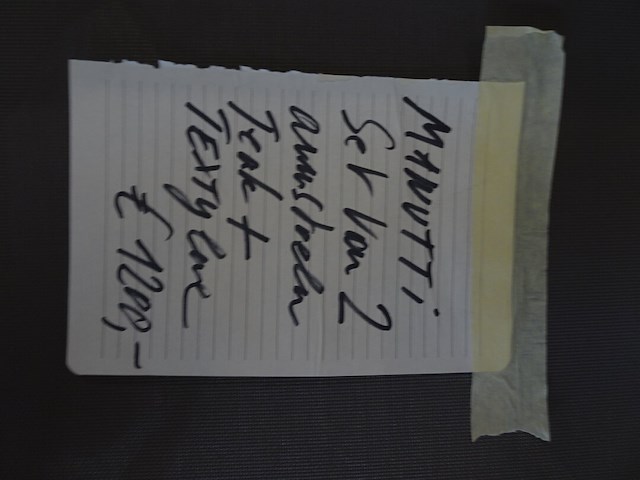 MANUTTI
Set van 2
armstoelen
Teak +
TEXTYlene
€ 1200,-